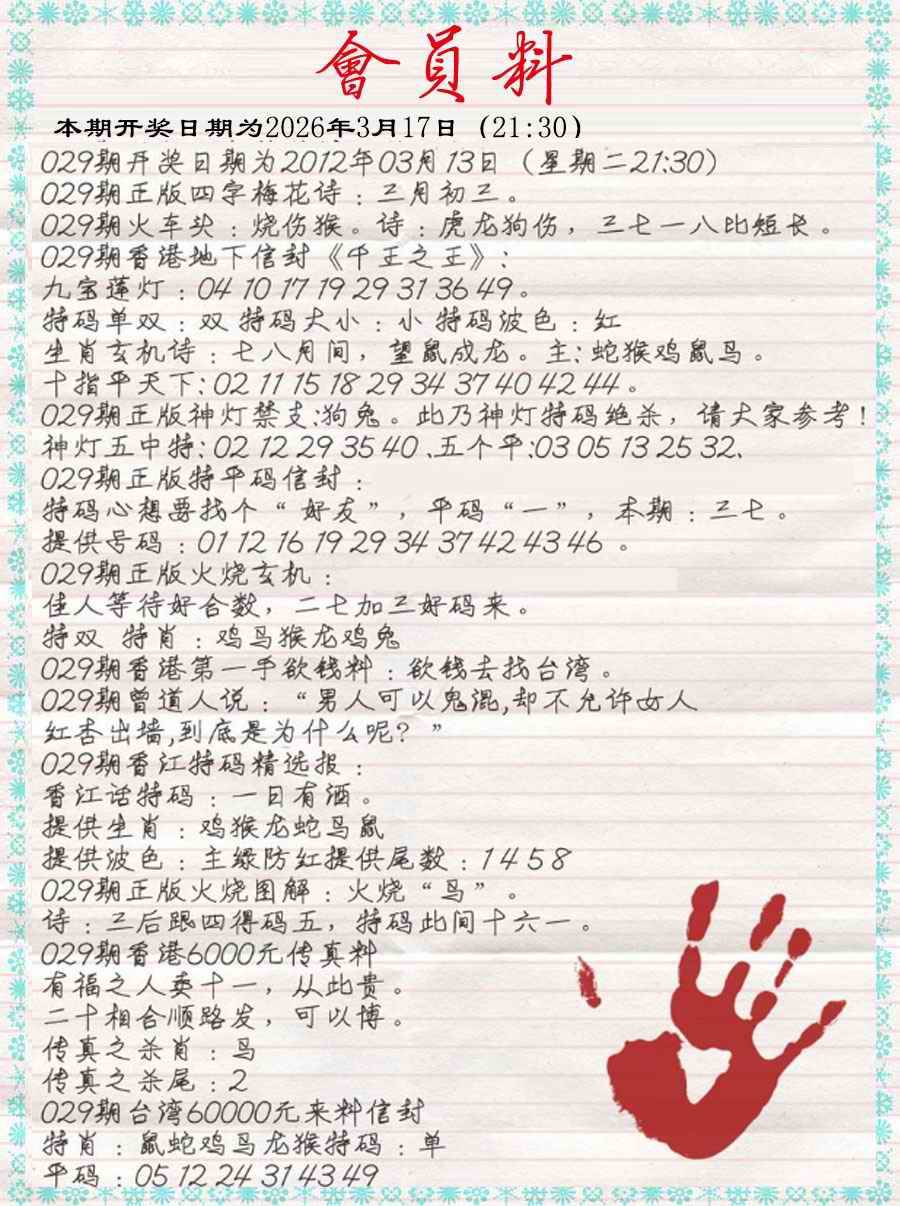 會員料
本期开奖日期为2026年3月17日（21:30）
029期开奖日期为2012年03月13日（星期二21:30）
029期正版四字梅花诗：三月初三。
029期火车头：烧伤猴。诗：虎龙狗伤，三七一八比短长。
029期香港地下信封《千王之王》：
九宝莲灯：04 10 17 19 29 31 36 49。
特码单双：双 特码大小：小 特码波色：红
生肖玄机诗：七八月间，望鼠成龙。主：蛇猴鸡鼠马。
十指平天下：02 11 15 18 29 34 37 40 42 44。
029期正版神灯禁支:狗兔。此乃神灯特码绝杀，请大家参考！
神灯五中特：02 12 29 35 40、五个平:03 05 13 25 32、
029期正版特平码信封：
特码心想要找个“好友”，平码“一”，本期：三七。
提供号码：01 12 16 19 29 34 37 42 43 46 。
029期正版火烧玄机：
佳人等待好合数，二七加三好码来。
特双 特肖：鸡马猴龙鸡兔
029期香港第一手欲钱料：欲钱去找台湾。
029期曾道人说：“男人可以鬼混,却不允许女人
红杏出墙,到底是为什么呢？”
029期香江特码精选报：
香江话特码：一日有酒。
提供生肖：鸡猴龙蛇马鼠
提供波色：主绿防红提供尾数：1 4 5 8
029期正版火烧图解：火烧“马”。
诗：三后跟四得码五，特码此间十六一。
029期香港6000元传真料
有福之人卖十一，从此贵。
二十相合顺路发，可以博。
传真之杀肖：马
传真之杀尾：2
029期台湾60000元来料信封
特肖：鼠蛇鸡马龙猴特码：单
平码：05 12 24 31 43 49